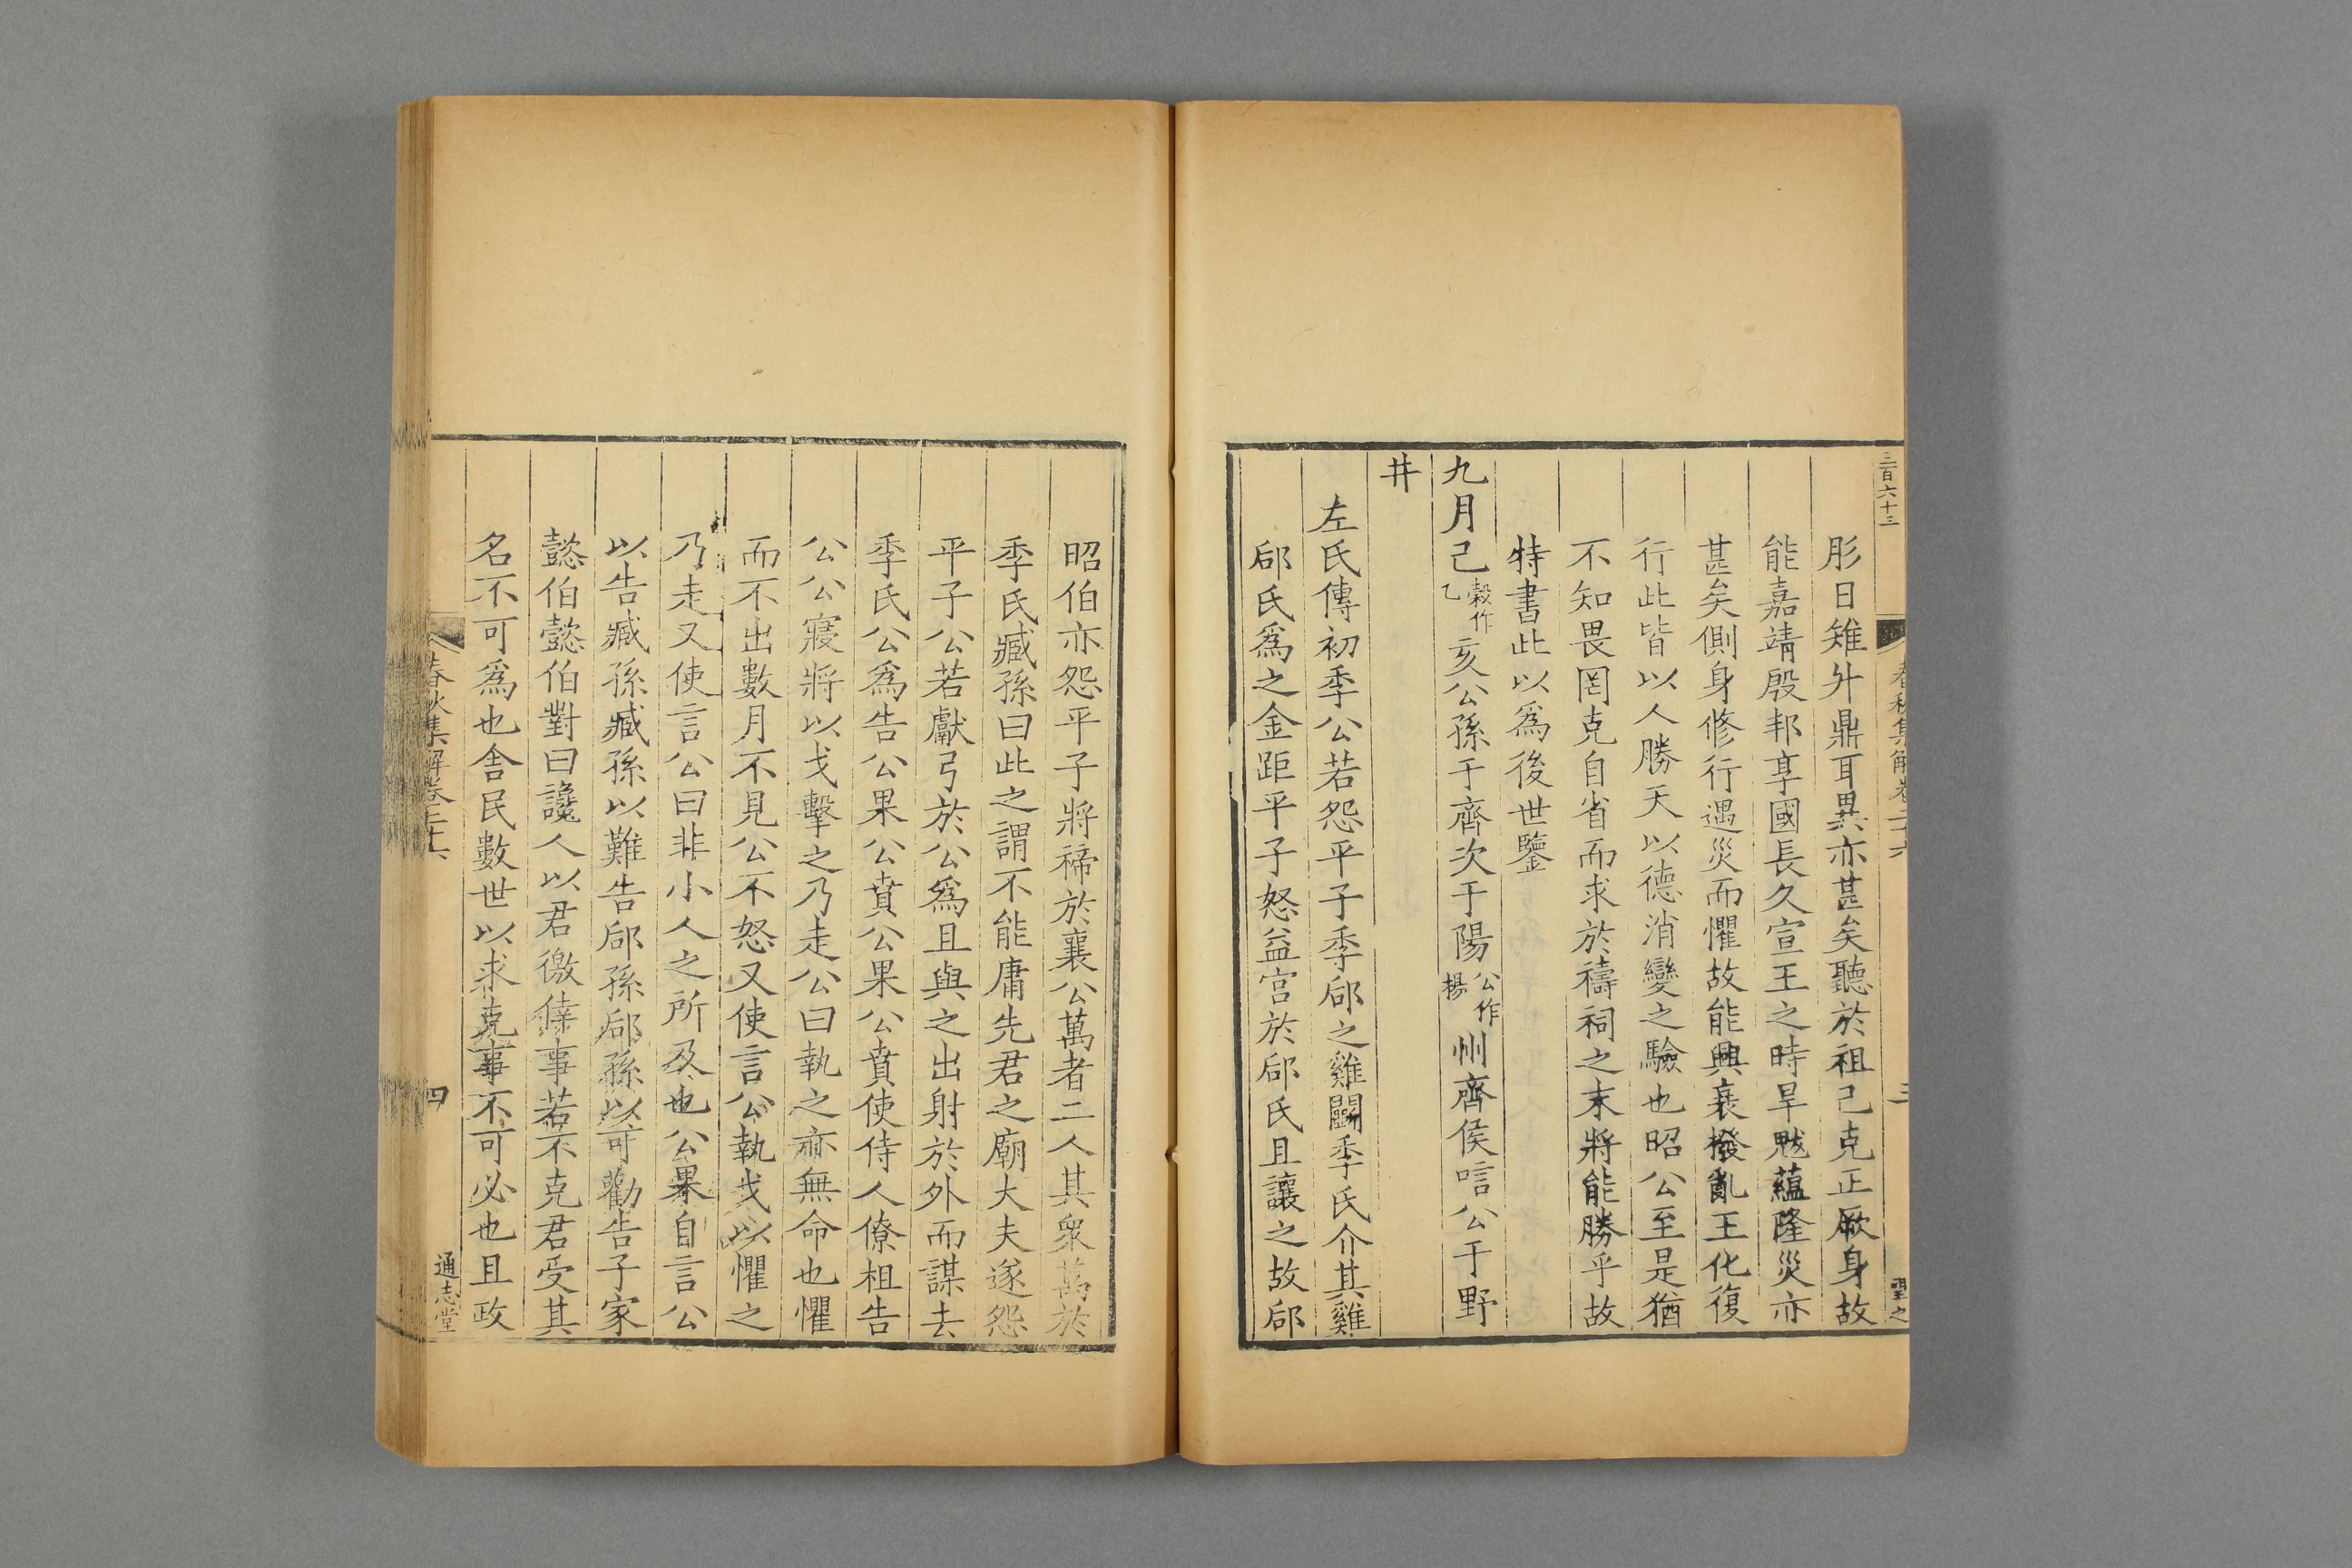 三百六十三
春秋集解卷二十六
三
肜日雉升鼎耳異亦甚矣聽於祖己克正厥身故
能嘉靖殷邦享國長久宣王之時旱魃蘊隆災亦
甚矣側身修行遇災而懼故能興衰撥亂王化復
行此皆以人勝天以德消變之驗也昭公至是猶
不知畏罔克自省而求於禱祠之末將能勝乎故
特書此以爲後世鑒
九月己穀作乙亥公孫于齊次于陽公作揚州齊侯唁公于野
井
左氏傳初季公若怨平子季郈之雞鬭季氏介其雞
郈氏爲之金距平子怒益宫於郈氏且讓之故郈
昭伯亦怨平子將禘於襄公萬者二人其衆萬於
季氏臧孫曰此之謂不能庸先君之廟大夫遂怨
平子公若獻弓於公爲且與之出射於外而謀去
季氏公爲告公果公賁公果公賁使侍人僚柤告
公公寢將以戈擊之乃走公曰執之亦無命也懼
而不出數月不見公不怒又使言公執戈以懼之
乃走又使言公曰非小人之所及也公果自言公
以告臧孫臧孫以難告郈孫郈孫以可勸告子家
懿伯懿伯對曰讒人以君徼倖事若不克君受其
名不可爲也舍民數世以求克事不可必也且政
春秋集解卷二十六
四
通志堂